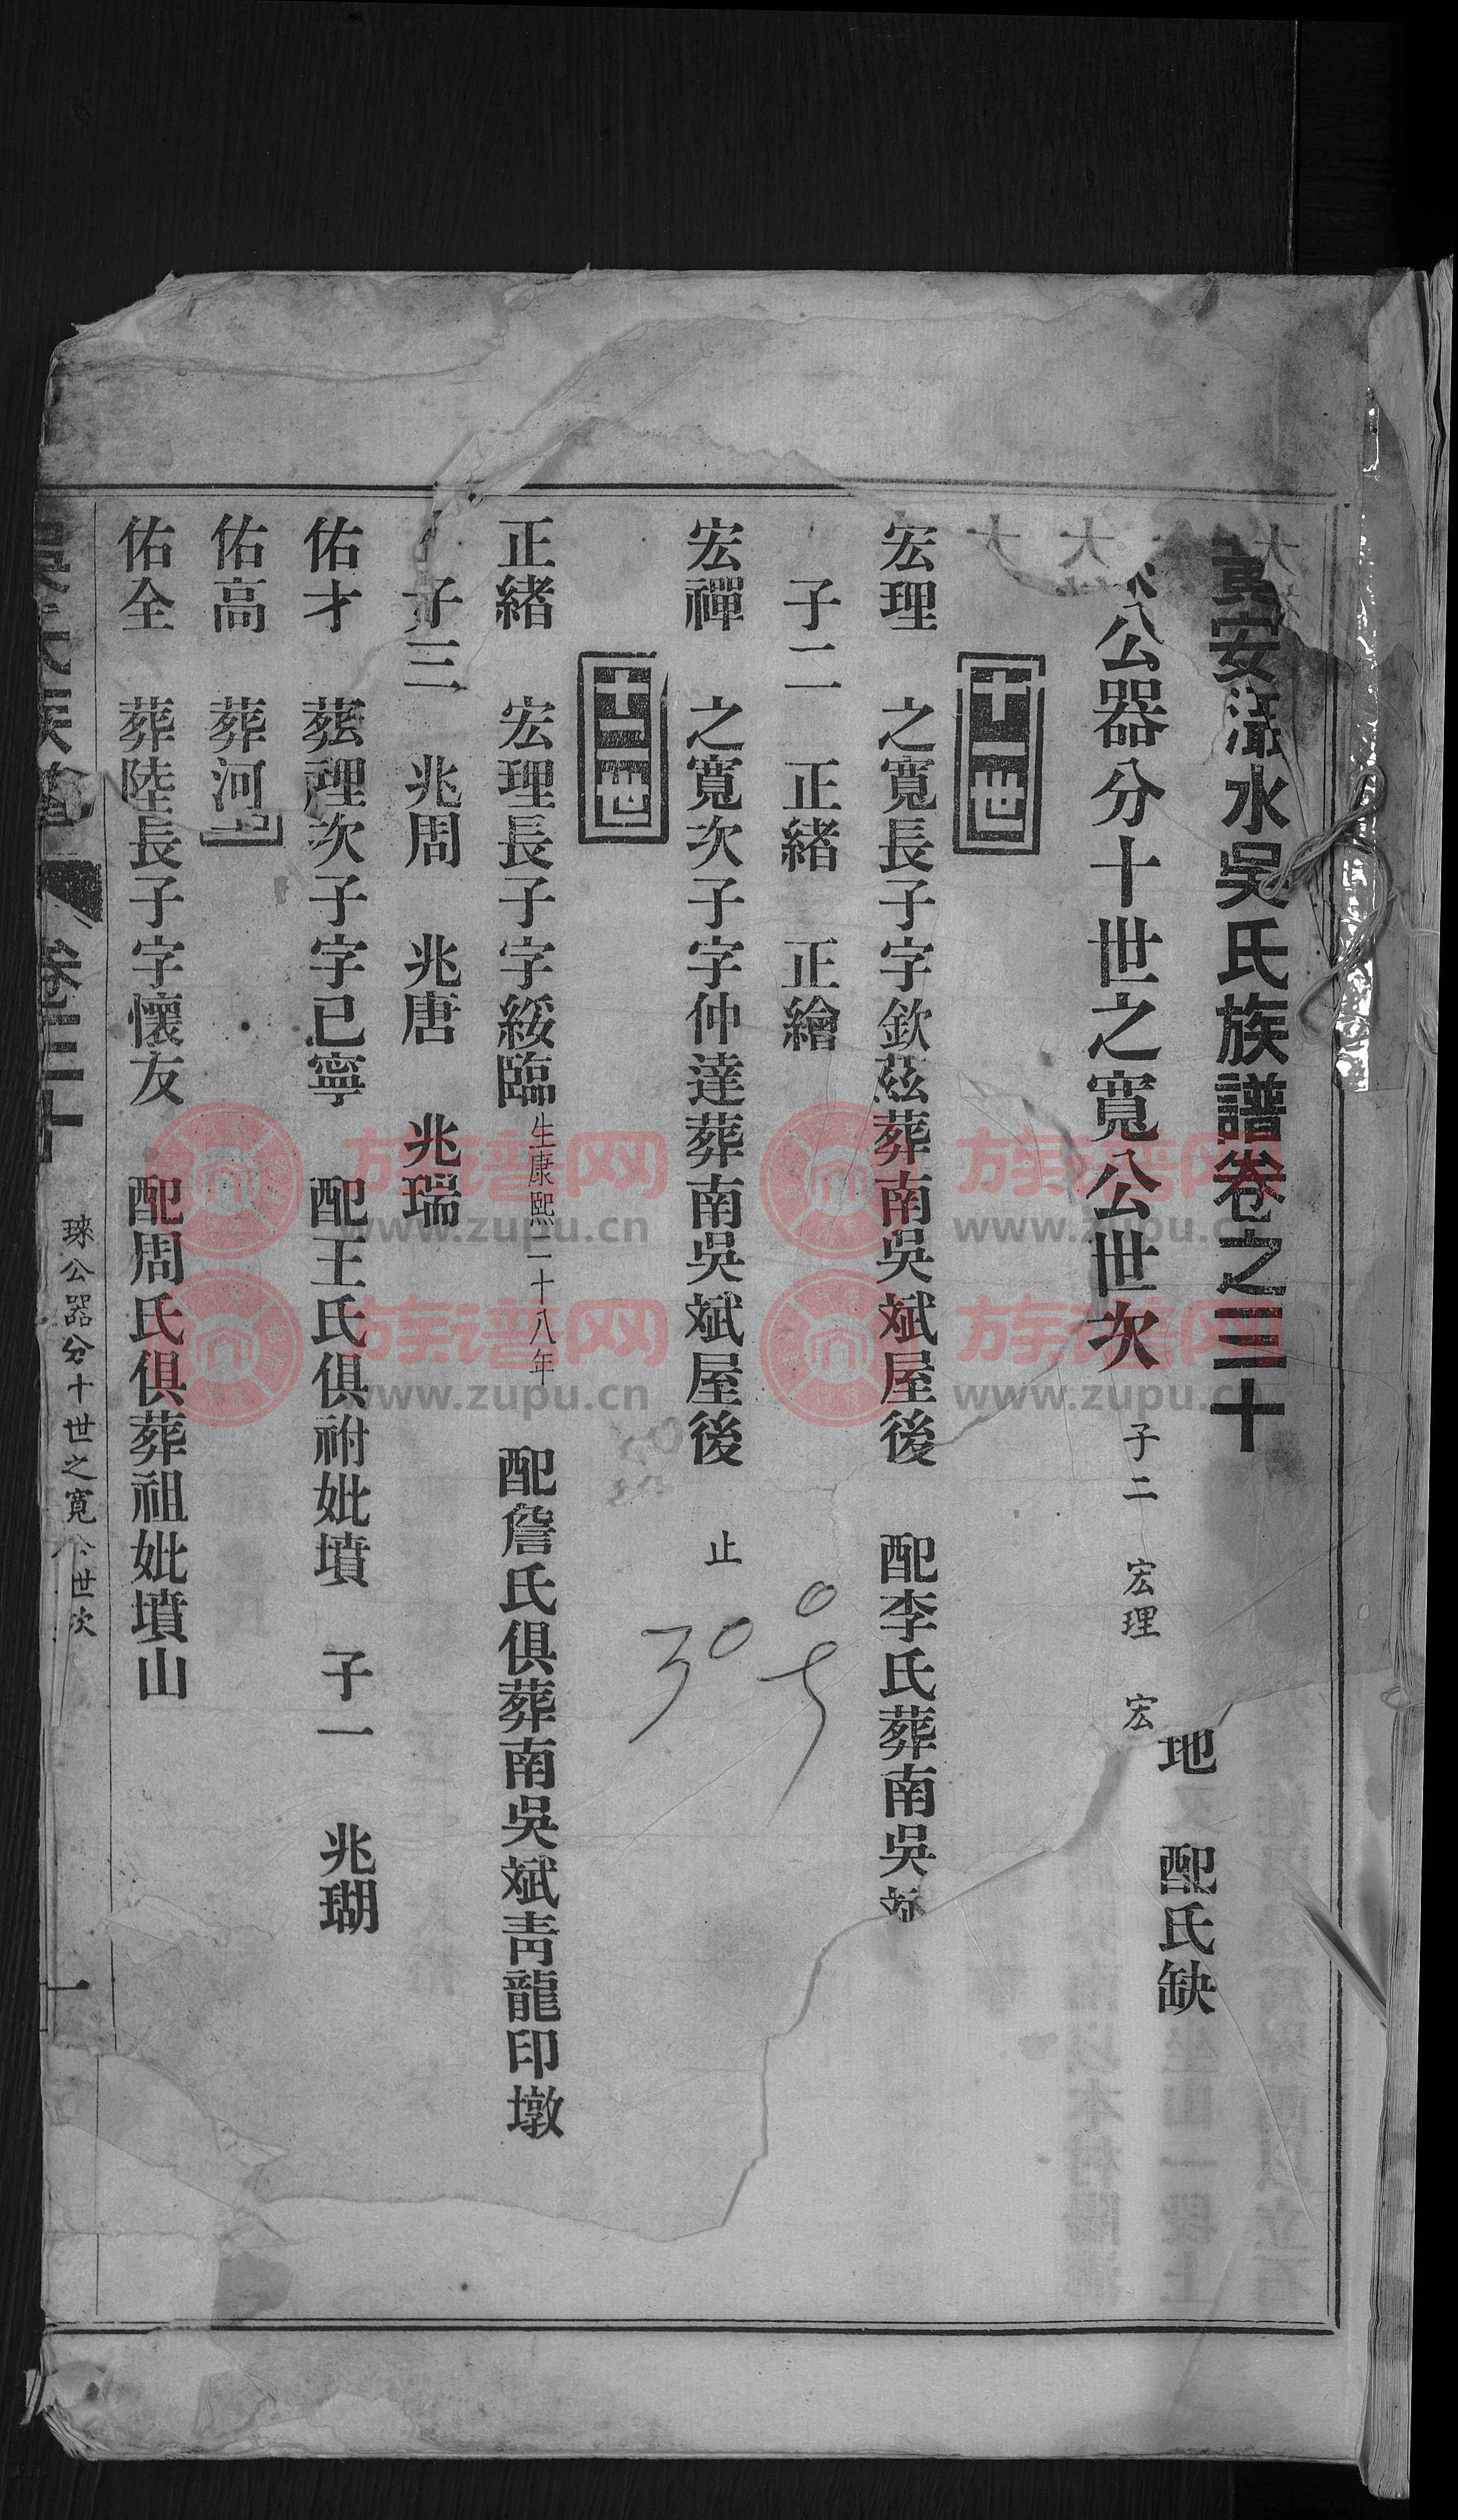 安灊水吳氏族譜卷之三十
公器分十世之寬公世次 子二 宏理 宏
地 配氏缺
十一世
宏理 之寬長子字欽茲葬南吳斌屋後 配李氏葬南吳
子二 正緒 正繪
宏禪 之寬次子字仲達葬南吳斌屋後 止
30
十二世
正緒 宏理長子字綏臨生康熙二十八年 配詹氏俱葬南吳斌青龍印墩
子三 兆周 兆唐 兆瑞
佑才 理次子字已寧 配王氏俱祔妣墳 子一 兆瑚
佑高 葬河
佑全 葬陸長子字懷友 配周氏俱葬祖妣墳山
卷三十 琜公器分十世之寬 世次 一
族谱网 www.zupu.cn
族谱网 www.zupu.cn
族谱网 www.zupu.cn
族谱网 www.zupu.cn